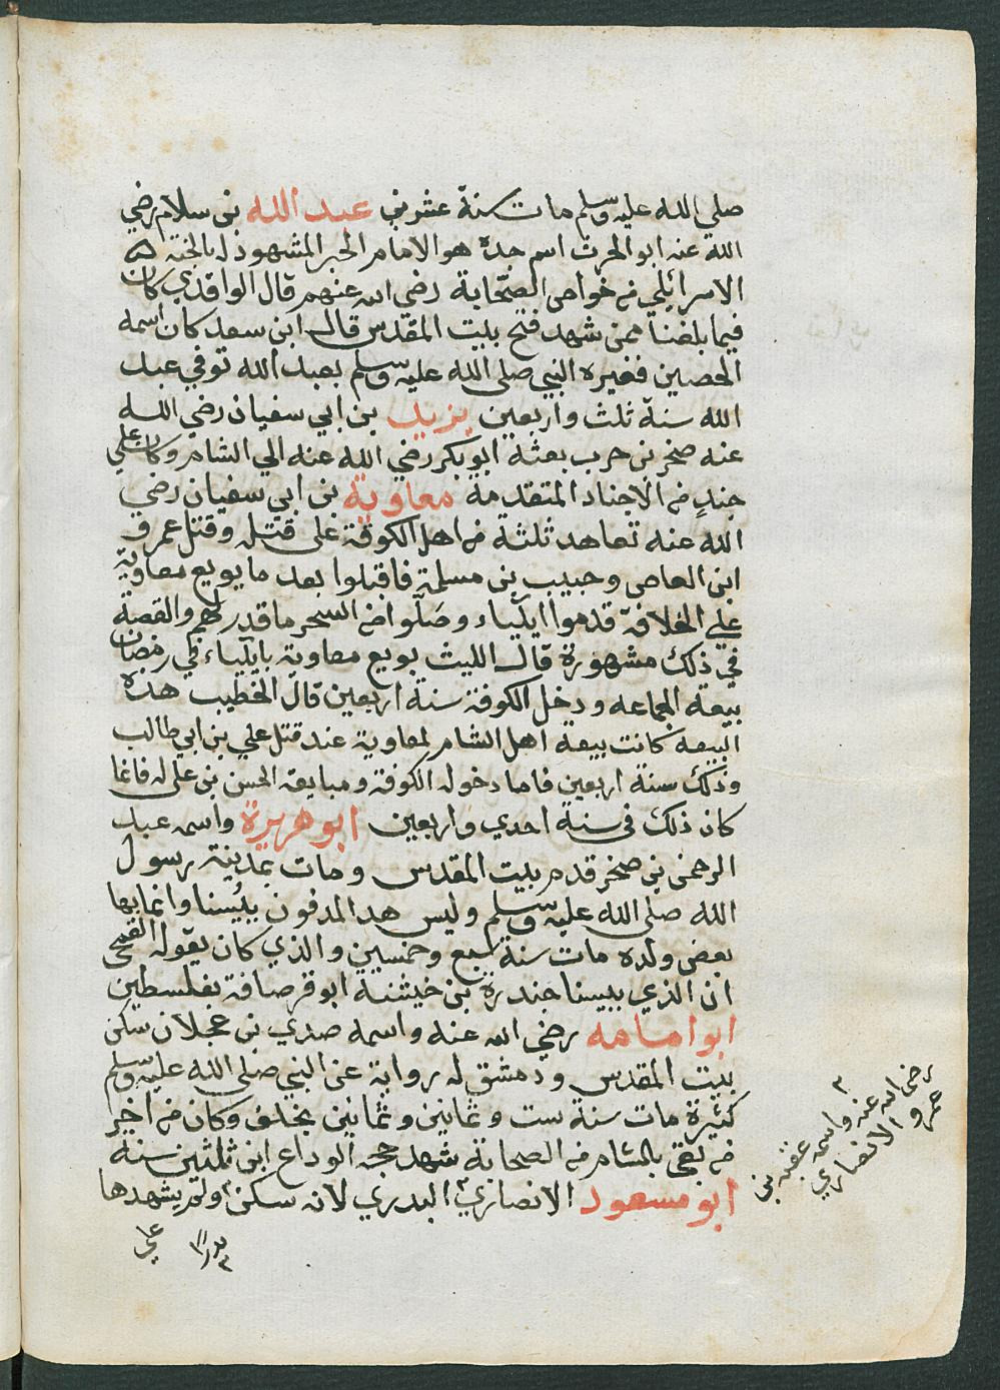 صلي الله عليه وسلم مات سنة عشرين عبد الله بن سلام رضي
الله عنه ابو الحرث اسم جده هو الامام الحبر المشهود له بالجنة
الاسرائيلي من خواص الصحابة رضي الله عنهم قال الواقدي كان
فيما بلغنا ممن شهد فتح بيت المقدس قال ابن سعد كان اسمه
الحصين فغيره النبي صلى الله عليه وسلم بعبد الله توفي عبد
الله سنة ثلث واربعين يزيد بن ابي سفيان رضي الله
عنه صخر بن حرب بعثه ابو بكر رضي الله عنه الي الشام وكان علي
جند من الاجناد المتقدمة معاوية بن ابي سفيان رضي
الله عنه تعاهد ثلثة من اهل الكوفة على قتله وقتل عمرو
ابن العاص وحبيب بن مسلمة فاقبلوا بعد ما بويع معاوية
علي الخلافة قدموا ايلياء وصلوا السحر ما قدر لهم والقصة
في ذلك مشهورة قال الليث بويع معاوية بايلياء في رمضان
بيعة الجماعه ودخل الكوفة سنة اربعين قال الخطيب هذه
البيعه كانت بيعة اهل الشام لمعاوية عند قتل علي بن ابي طالب
وذلك سنة اربعين فاما دخوله الكوفة ومبايعة الحسن بن على له فانما
كان ذلك في سنة احدي واربعين ابو هريرة واسمه عبد
الرحمن بن صخر قدم بيت المقدس ومات بمدينة رسول
الله صلى الله عليه وسلم وليس هذا المدفون بيبنا وانما بها
بعض ولده مات سنة سبع وخمسين والذي كان يقوله
ان الذي بيبنا جندرة بن خيشنة ابو قرصافة بفلسطين
ابو امامه رضي الله عنه واسمه صدي بن عجلان سكن
بيت المقدس ودمشق له رواية عن النبي صلى الله عليه وسلم
كثيرة مات سنة ست وثمانين وثمانين بخلف وكان من اخر
من بقي بالشام من الصحابة شهد حجة الوداع ابن ثلثين سنة
ابو مسعود الانصاري البدري لانه سكن ولم يشهدها
بدرا
علي
رضي الله عنه واسمه عقبه بن
عمرو الانصاري